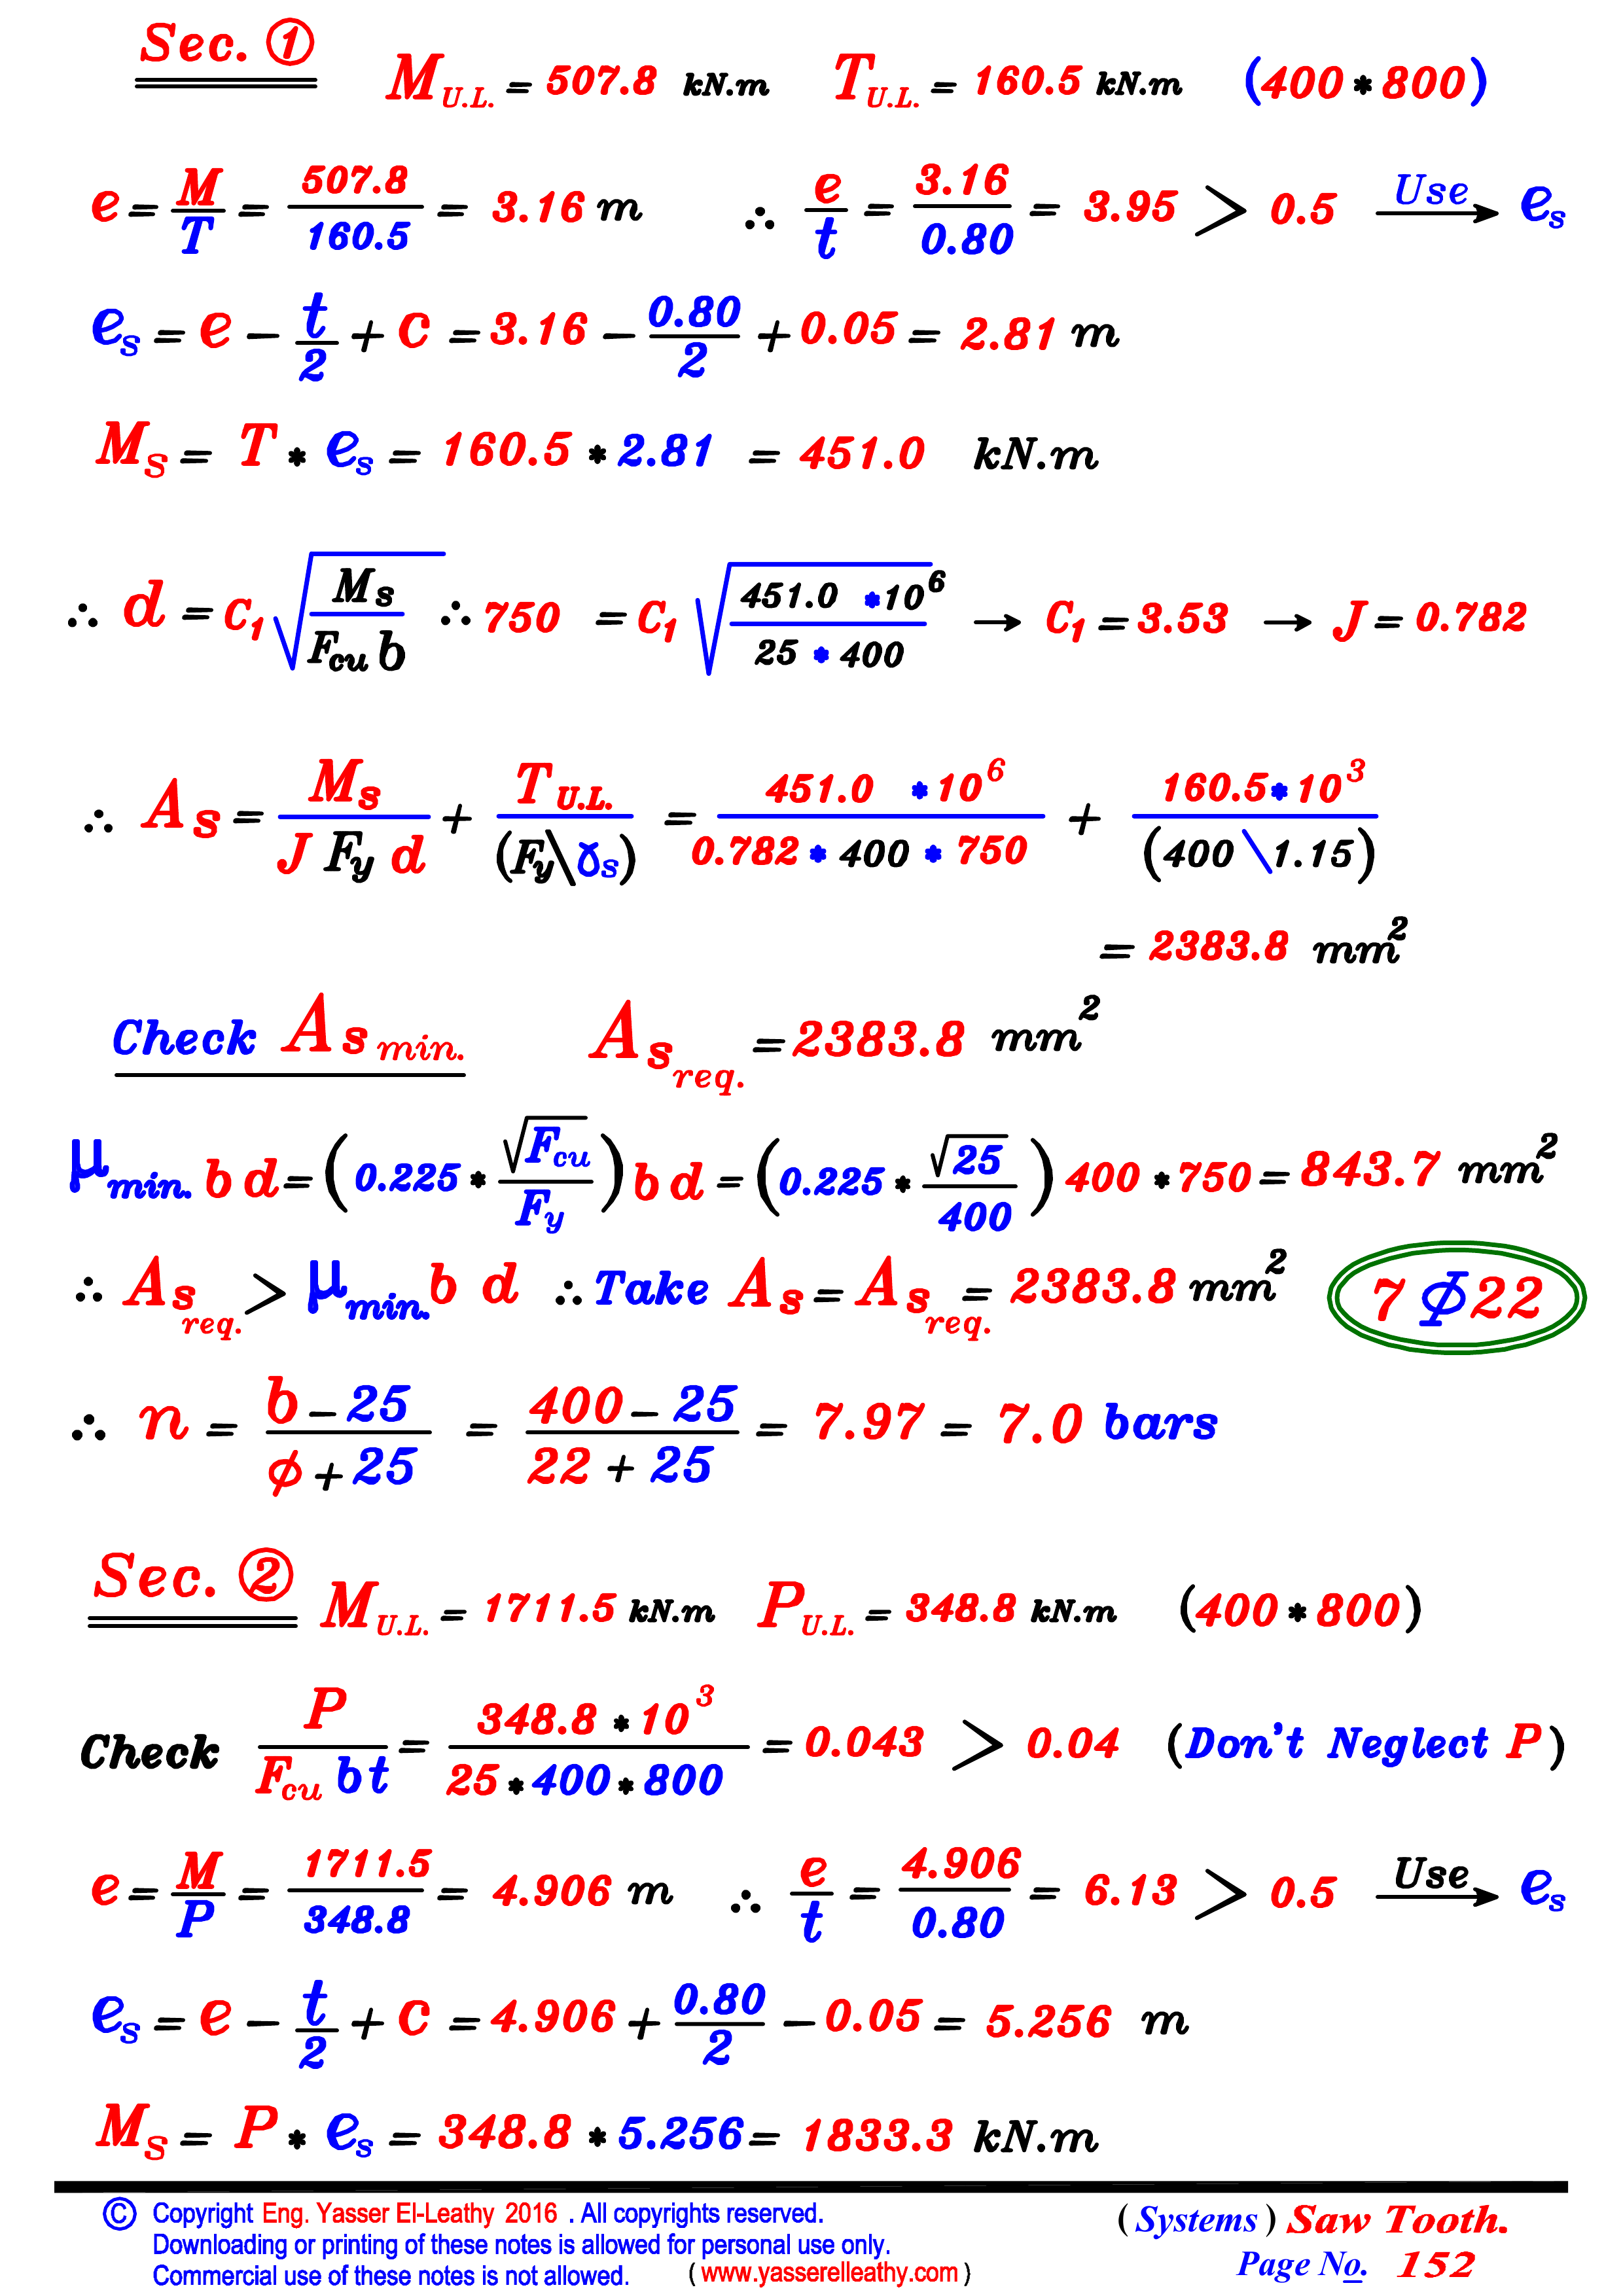 Sec. ① M U.L. = 507.8 kN.m T U.L. = 160.5 kN.m (400 * 800)
e = M/T = 507.8/160.5 = 3.16 m ∴ e/t = 3.16/0.80 = 3.95 > 0.5 Use → es
es = e - t/2 + c = 3.16 - 0.80/2 + 0.05 = 2.81 m
Ms = T * es = 160.5 * 2.81 = 451.0 kN.m
∴ d = C1 √(Ms / Fcu b) ∴ 750 = C1 √(451.0 *10^6 / 25 * 400) → C1 = 3.53 → J = 0.782
∴ As = Ms / J Fy d + T U.L. / (Fy\ɣs) = 451.0 *10^6 / 0.782 * 400 * 750 + 160.5*10^3 / (400 \1.15)
= 2383.8 mm²
Check As min. As req. = 2383.8 mm²
μmin. b d = (0.225 * √Fcu / Fy) b d = (0.225 * √25 / 400) 400 * 750 = 843.7 mm²
∴ As req. > μmin. b d ∴ Take As = As req. = 2383.8 mm² 7 Φ 22
∴ n = b - 25 / ϕ + 25 = 400 - 25 / 22 + 25 = 7.97 = 7.0 bars
Sec. ② M U.L. = 1711.5 kN.m P U.L. = 348.8 kN.m (400 * 800)
Check P / Fcu b t = 348.8 * 10^3 / 25 * 400 * 800 = 0.043 > 0.04 (Don't Neglect P)
e = M/P = 1711.5/348.8 = 4.906 m ∴ e/t = 4.906/0.80 = 6.13 > 0.5 Use → es
es = e - t/2 + c = 4.906 + 0.80/2 - 0.05 = 5.256 m
Ms = P * es = 348.8 * 5.256 = 1833.3 kN.m
© Copyright Eng. Yasser El-Leathy 2016 . All copyrights reserved.
Downloading or printing of these notes is allowed for personal use only.
Commercial use of these notes is not allowed. ( www.yasserelleathy.com )
( Systems ) Saw Tooth.
Page No. 152